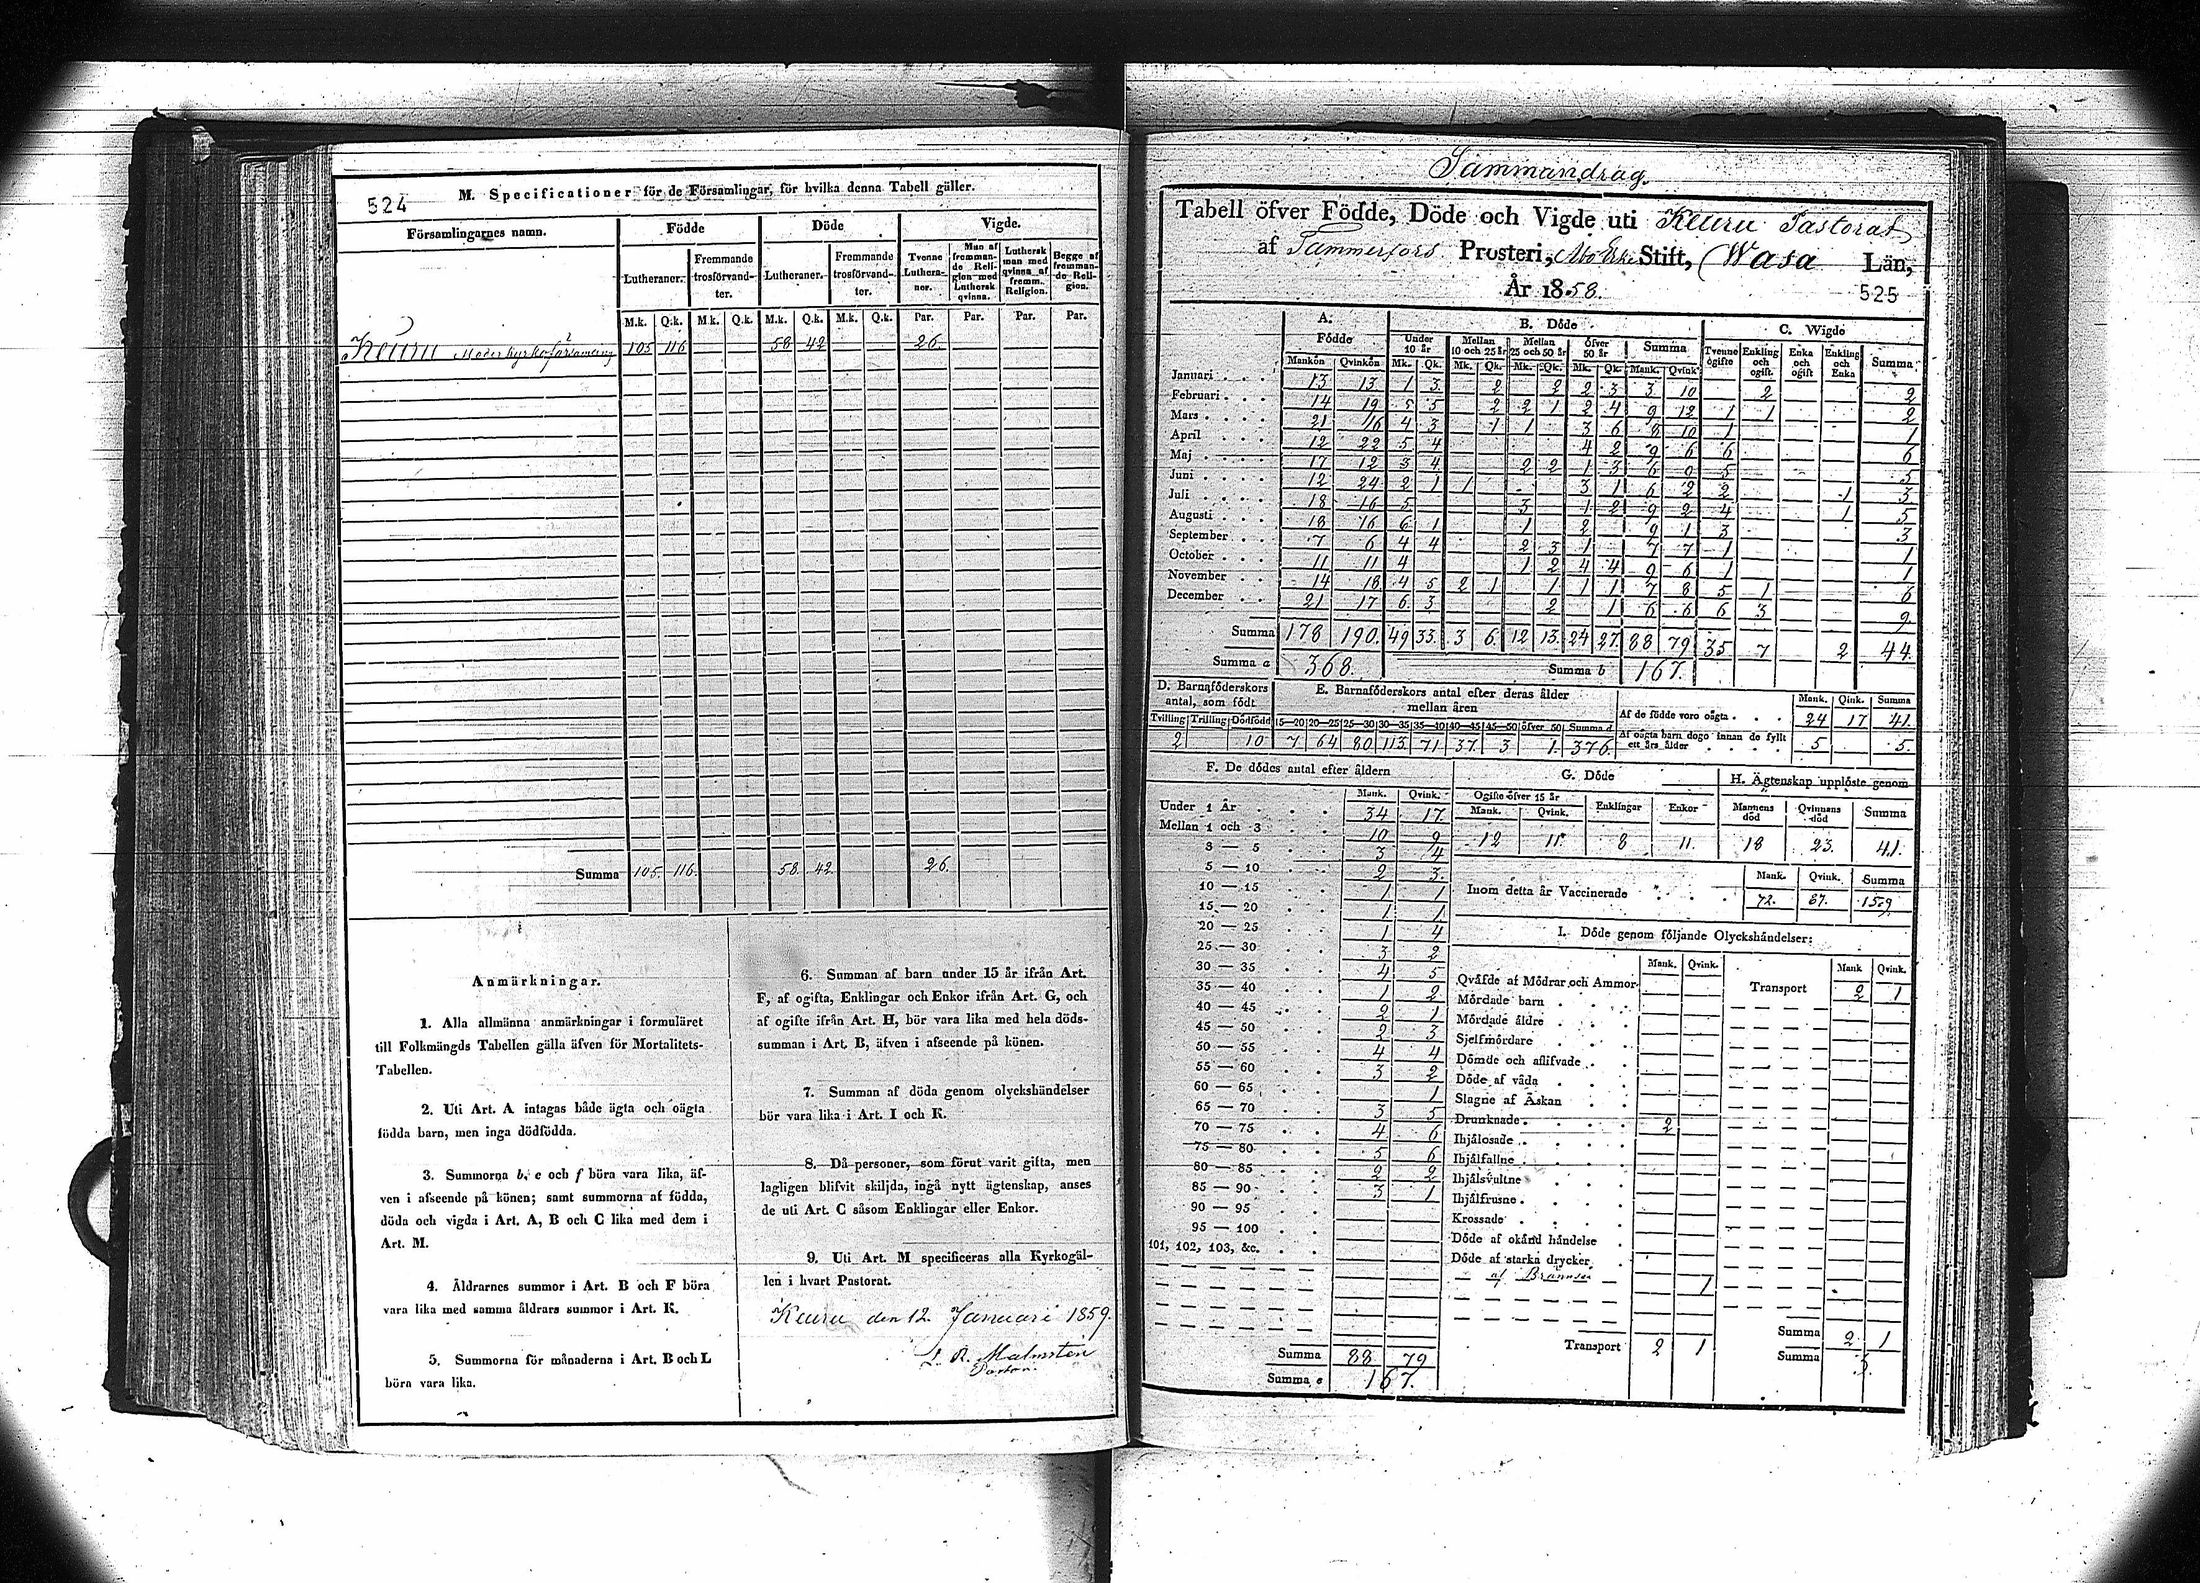 524
M. Specificationer för de Församlingar, för hvilka denna Tabell gäller.
Församlingarnes namn. Födde Döde Vigde.
Lutheraner. Fremmande trosförvandter. Lutheraner. Fremmande trosförvandter. Tvenne Lutheraner. Man af fremmande Religion med Luthersk qvinna. Luthersk man med qvinna af fremm. Religion. Begge af fremmande Religion.
M.k. Q.k. M.k. Q.k. M.k. Q.k. M.k. Q.k. Par. Par. Par. Par.
Keuru Moderkyrkoförsamling 105 116 58 42 26.
Summa 105. 116. 58. 42. 26.
Anmärkningar.
1. Alla allmänna anmärkningar i formuläret
till Folkmängds Tabellen gälla äfven för Mortalitets-
Tabellen.
2. Uti Art. A intagas både ägta och oägta
födda barn, men inga dödfödda.
3. Summorna b, e och f böra vara lika, äf-
ven i afseende på könen; samt summorna af födda,
döda och vigda i Art. A, B och C lika med dem i
Art. M.
4. Åldrarnes summor i Art. B och F böra
vara lika med samma åldrars summor i Art. K.
5. Summorna för månaderna i Art. B och L
böra vara lika.
6. Summan af barn under 15 år ifrån Art.
F, af ogifta, Enklingar och Enkor ifrån Art. G, och
af ogifte ifrån Art. H, bör vara lika med hela döds-
summan i Art. B, äfven i afseende på könen.
7. Summan af döda genom olyckshändelser
bör vara lika i Art. I och K.
8. Då personer, som förut varit gifta, men
lagligen blifvit skiljda, ingå nytt ägtenskap, anses
de uti Art. C såsom Enklingar eller Enkor.
9. Uti Art. M specificeras alla Kyrkogäl-
len i hvart Pastorat.
Keuru den 12. Januari 1859.
Malmstén
Pastor.
Sammandrag.
Tabell öfver Födde, Döde och Vigde uti Keuru Pastorat
af Tammerfors Prosteri, Åbo Erke Stift, Wasa Län,
År 1858.
525
A. Födde B. Döde C. Wigde
Under 10 år Mellan 10 och 25 år Mellan 25 och 50 år öfver 50 år Summa Tvenne ogifte Enkling och ogift Enka och ogift Enkling och Enka Summa
Mankön Qvinkön Mk. Qk. Mk. Qk. Mk. Qk. Mk. Qk. Mank. Qvink.
Januari 13 13 1 3 2 2 2 3 3 10 2 2
Februari 14 19 5 5 2 2 1 2 4 9 12 1 1 2
Mars 21 16 4 3 1 1 3 6 8 10 1 1
April 12 22 5 4 4 2 9 6 6 6
Maj 17 12 3 4 2 2 1 3 6 9 5 5
Juni 12 24 2 1 1 3 1 6 2 2 1 3
Juli 18 16 5 3 1 2 9 2 4 1 5
Augusti 18 16 6 1 1 2 9 1 3 3
September 7 6 4 4 2 3 1 7 7 1 1
October 11 11 4 1 2 4 4 9 6 1 1
November 14 18 4 5 2 1 1 1 1 7 8 5 1 6
December 21 17 6 3 2 1 6 6 6 3 9
Summa 178 190. 49 33. 3 6. 12 13. 24 27. 88 79 35 7 2 44.
Summa a 368. Summa b 167.
D. Barnaföderskors antal, som födt
Tvilling Trilling Dödfödd
2 10
E. Barnaföderskors antal efter deras ålder mellan åren
15—20 20—25 25—30 30—35 35—40 40—45 45—50 öfver 50 Summa d
7 64 80 113 71 37. 3 1. 376.
Mank. Qink. Summa
Af de födde voro oägta 24 17 41.
Af oägta barn dogo innan de fyllt ett års ålder 5 5.
F. De dödes antal efter åldern
Mank. Qvink.
Under 1 År 34 17.
Mellan 1 och 3 10 9
3 — 5 3 4
5 — 10 2 3.
10 — 15 1 1
15 — 20 1 1
20 — 25 1 4
25 — 30 3 2
30 — 35 4 5
35 — 40 1 2
40 — 45 2 1
45 — 50 2 3
50 — 55 4 4
55 — 60 3 2
60 — 65 1
65 — 70 3 5
70 — 75 4 6
75 — 80 5 6
80 — 85 2 2
85 — 90 3 1
90 — 95
95 — 100
101, 102, 103, &c.
Summa 88 79
Summa e 167.
G. Döde
Ogifte öfver 15 år Enklingar Enkor
Mank. Qvink.
12 11 8 11.
H. Ägtenskap upplöste genom
Mannens död Qvinnans död Summa
18 23. 41.
Mank. Qvink. Summa
Inom detta år Vaccinerade 72. 67.
I. Döde genom följande Olyckshändelser:
Mank. Qvink. Mank Qvink.
Qväfde af Mödrar och Ammor Transport 2 1
Mördade barn
Mördade äldre
Sjelfmördare
Dömde och aflifvade
Döde af våda
Slagne af Åskan
Drunknade 2
Ihjälosade
Ihjälfallne
Ihjälsvultne
Ihjälfrusne
Krossade
Döde af okänd händelse
Döde af starka drycker
1
Transport 2 1
Summa 2 1
Summa 3.